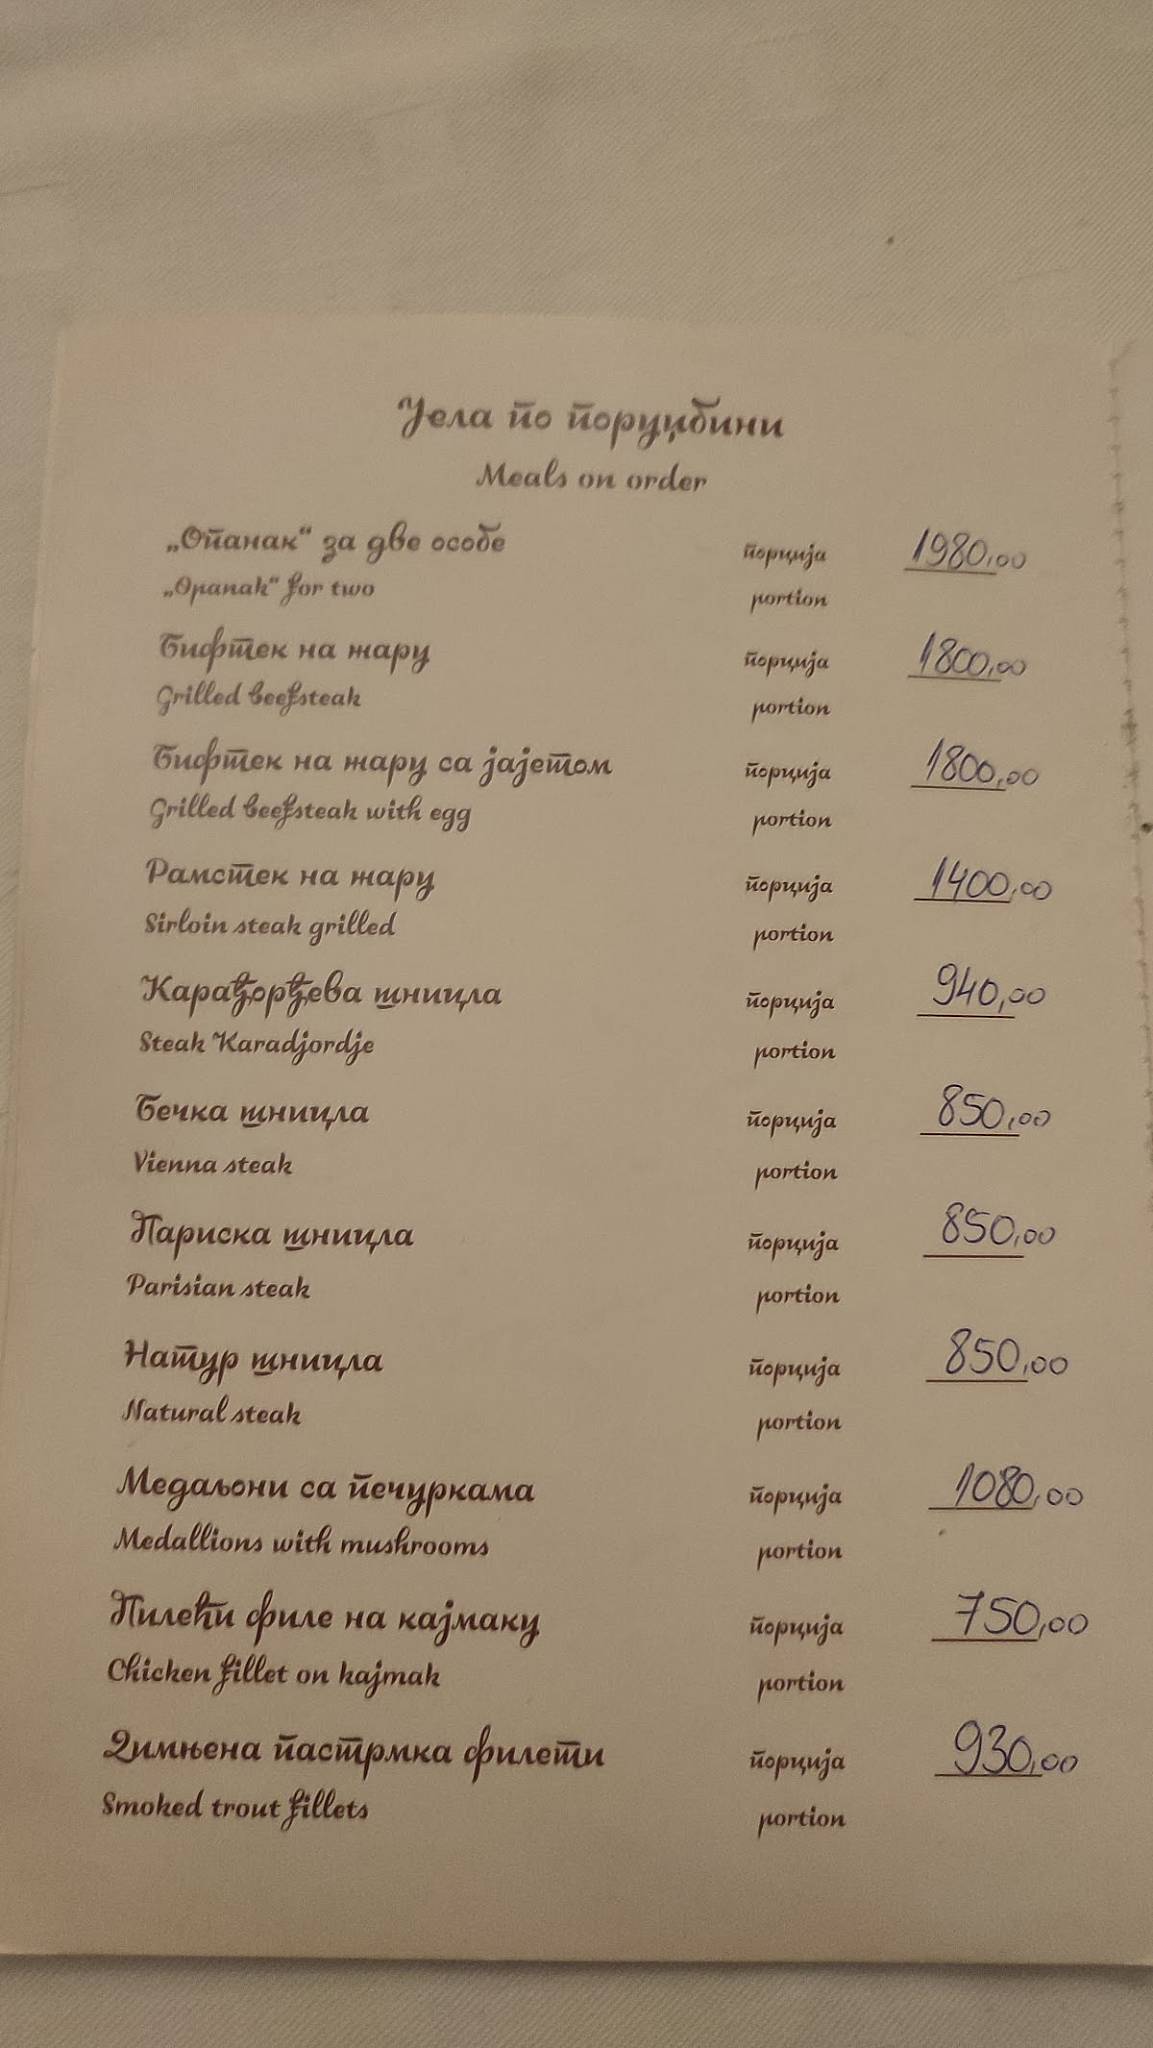 Јела по поруџбини
Meals on order
„Опанак“ за две особе порција 1980,00
„Opanak“ for two portion
Бифтек на жару порција 1800,00
Grilled beefsteak portion
Бифтек на жару са јајетом порција 1800,00
Grilled beefsteak with egg portion
Рамстек на жару порција 1400,00
Sirloin steak grilled portion
Карађорђева шницла порција 940,00
Steak Karadjordje portion
Бечка шницла порција 850,00
Vienna steak portion
Париска шницла порција 850,00
Parisian steak portion
Натур шницла порција 850,00
Natural steak portion
Медаљони са печуркама порција 1080,00
Medallions with mushrooms portion
Пилећи филе на кајмаку порција 750,00
Chicken fillet on kajmak portion
Димњена пастрмка филети порција 930,00
Smoked trout fillets portion